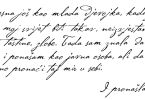 sna još kao mlada djevojka, kada
my svijet biti takav, neizvjestan
Tada sam znala da
i ponašam kao javna osoba, ali da
no pronaći taj mir u sebi.
I pronašla